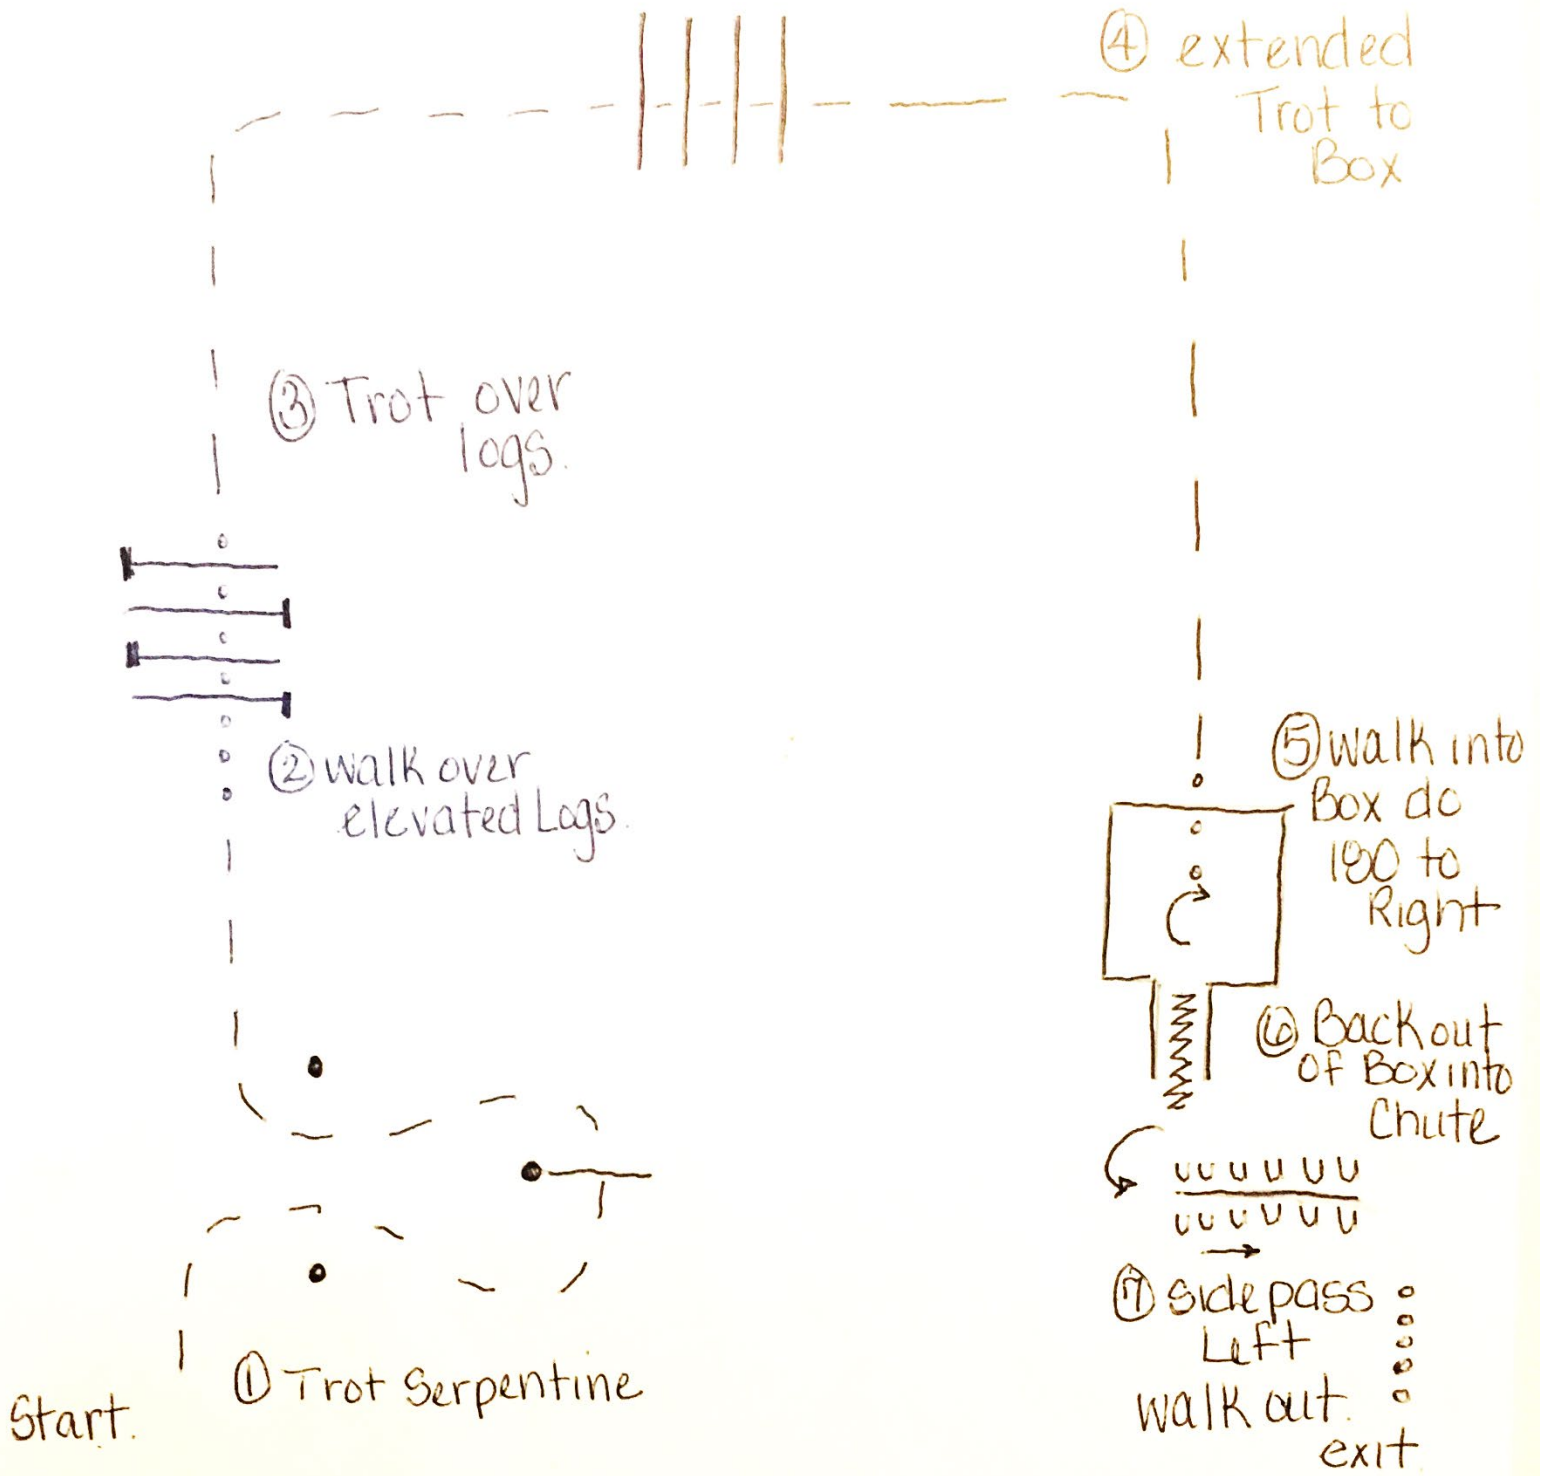 ④ extended
Trot to
Box
③ Trot over
logs.
② walk over
elevated Logs.
⑤ walk into
Box do
180 to
Right
⑥ Back out
of Box into
Chute
⑦ sidepass
Left
walk out.
exit
① Trot Serpentine
Start.